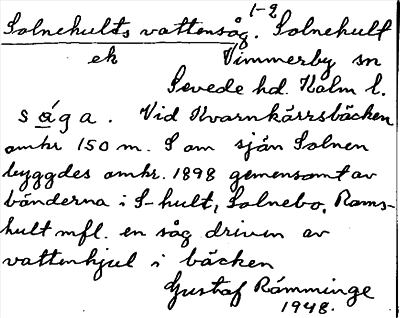 1-2
Solnehults vattensåg. Solnehult
ek Vimmerby sn
Sevede hd. Kalm l.
såga. Vid Kvarnkärrsbäcken
omkr 150 m. S om sjön Solnen
byggdes omkr. 1898 gemensamt av
bönderna i S-hult, Solnebo, Rams-
hult mfl. en såg driven av
vattenhjul i bäcken
Gustaf Rämminge
1948.